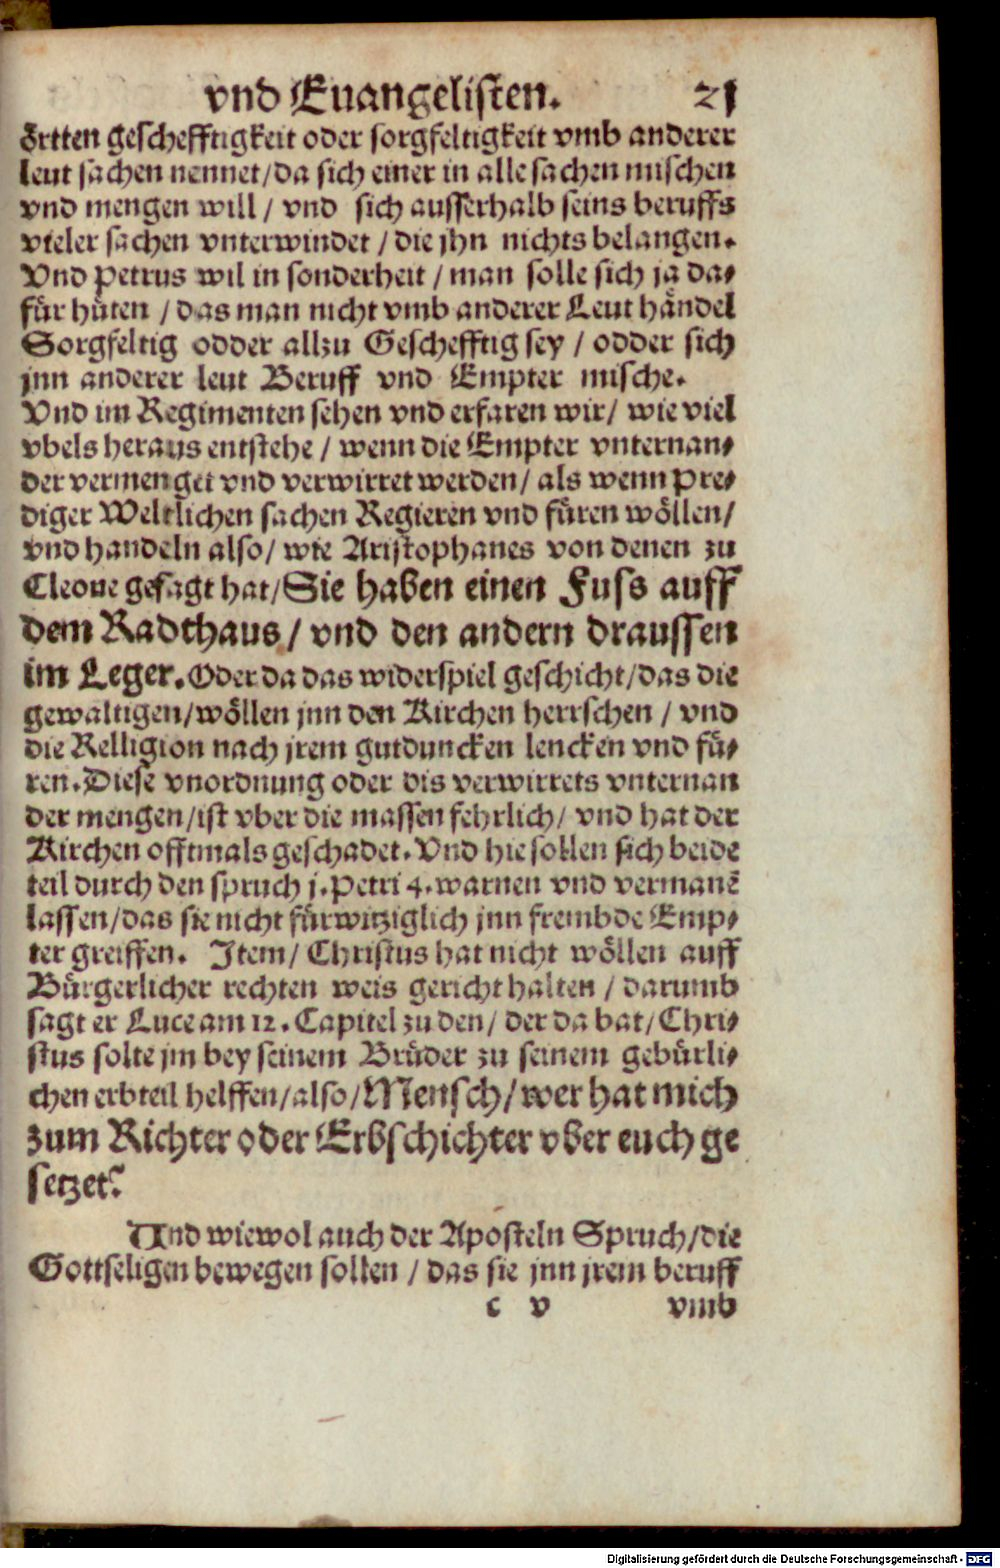 vnd Euangelisten. 21
örtten geschefftigkeit oder sorgfeltigkeit vmb anderer
leut sachen nennet/da sich einer in alle sachen mischen
vnd mengen will / vnd sich ausserhalb seins beruffs
vieler sachen vnterwindet / die jhn nichts belangen.
Vnd Petrus wil in sonderheit / man solle sich ja da-
für hüten / das man nicht vmb anderer Leut händel
Sorgfeltig odder allzu Geschefftig sey / odder sich
jnn anderer leut Beruff vnd Empter mische.
Vnd im Regimenten sehen vnd erfaren wir/ wie viel
vbels heraus entstehe / wenn die Empter vnternan-
der vermenget vnd verwirret werden/ als wenn Pre-
diger Weltlichen sachen Regieren vnd füren wöllen/
vnd handeln also/ wie Aristophanes von denen zu
Cleone gesagt hat/Sie haben einen Fuss auff
dem Radthaus/ vnd den andern draussen
im Leger. Oder da das widerspiel geschicht/das die
gewaltigen/wöllen jnn den Kirchen herrschen / vnd
die Relligion nach jrem gutduncken lencken vnd fü-
ren. Diese vnordnung oder dis verwirrets vnternan
der mengen/ist vber die massen fehrlich/ vnd hat der
Kirchen offtmals geschadet. Vnd hie sollen sich beide
teil durch den spruch j. Petri 4. warnen vnd vermanē
lassen/das sie nicht fürwitziglich jnn frembde Emp-
ter greiffen. Item/ Christus hat nicht wöllen auff
Bürgerlicher rechten weis gericht halten / darumb
sagt er Luce am 12. Capitel zu den/ der da bat/ Chri-
stus solte jm bey seinem Brüder zu seinem gebürli-
chen erbteil helffen/also/Mensch/wer hat mich
zum Richter oder Erbschichter vber euch ge
setzet?
Vnd wiewol auch der Aposteln Spruch/die
Gottseligen bewegen sollen / das sie jnn jrem beruff
c v vmb
Digitalisierung gefördert durch die Deutsche Forschungsgemeinschaft - DFG